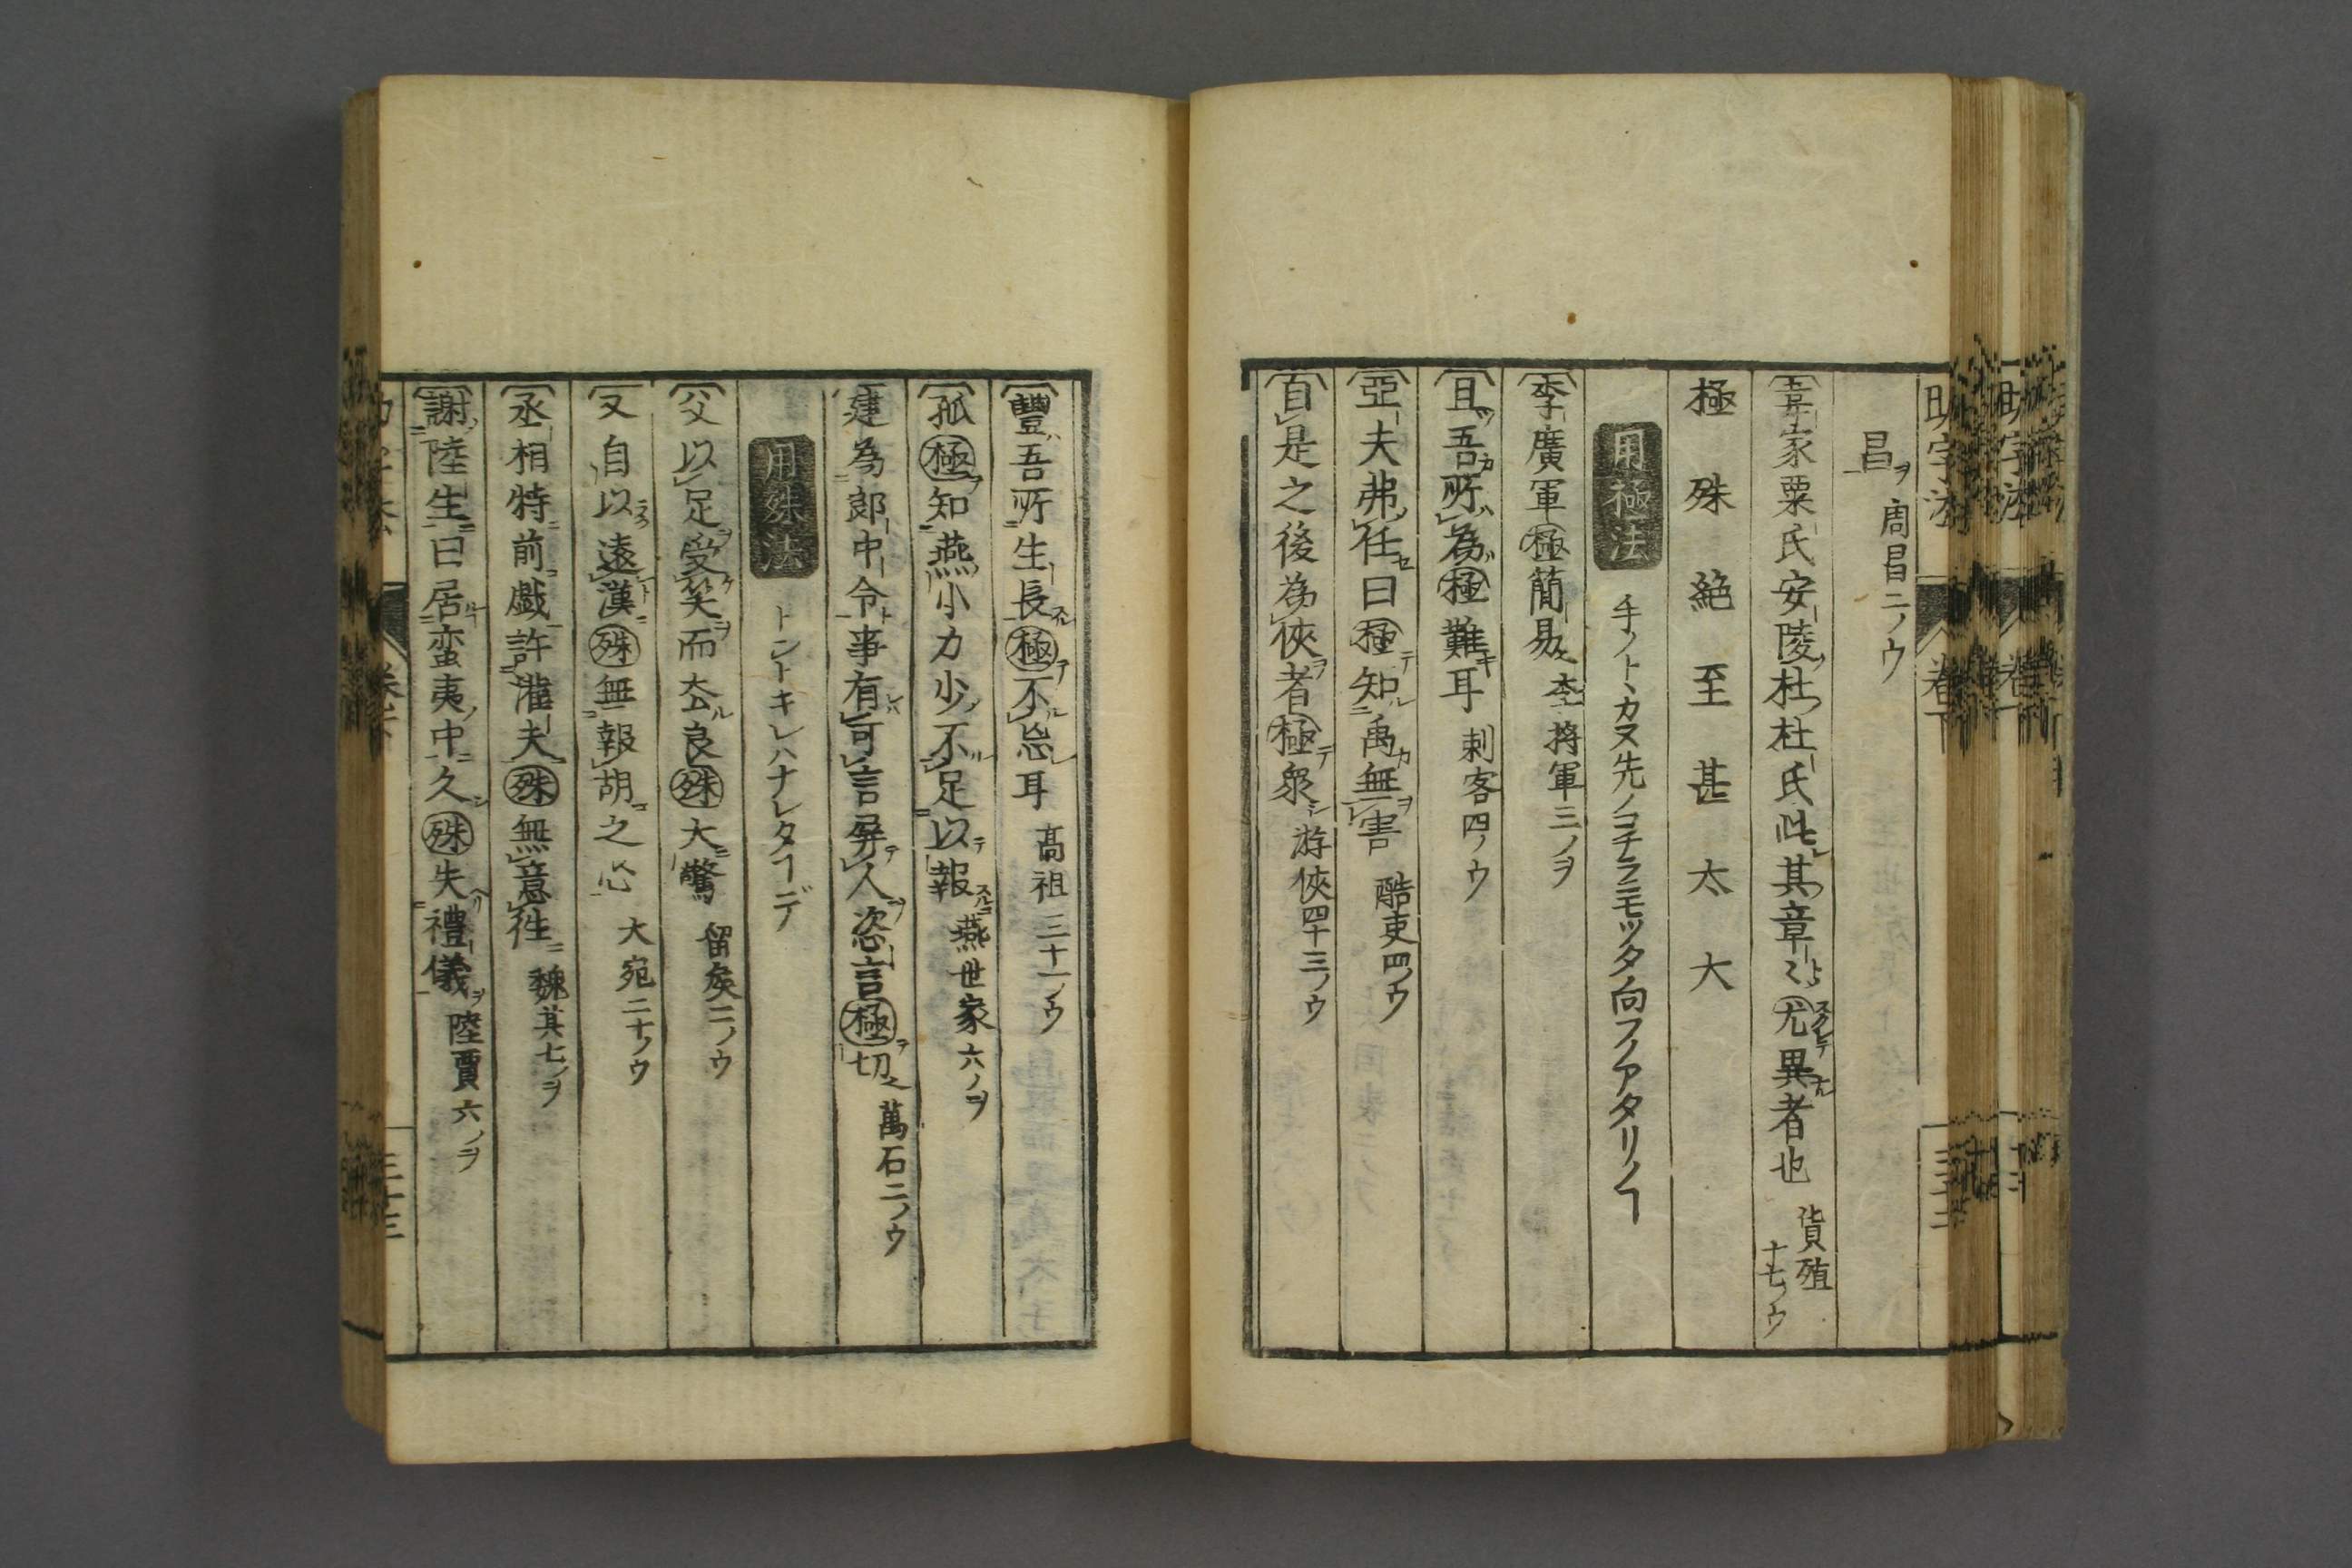 昌ヲ 周昌二ノウ
韋家粟氏安陵杜杜氏此其章〻尤異者也 貨殖十七ノウ
極 殊 絶 至 甚 太 大
用極法 手ノトヽカヌ先ノコチラニモツタ向フノアタリノヿ
李廣軍極簡易 李將軍三ノヲ
且吾所為極難耳 刺客四ノウ
亞夫弗任曰極知禹無害 酷吏四ノウ
自是之後為俠者極衆 游俠四十三ノウ
豐吾所生長極不忘耳 高祖三十一ノウ
孤極知燕小力少不足以報 燕世家六ノヲ
建為郎中令事有可言屏人恣言極切 萬石二ノウ
用殊法 トントキレハナレタヿデ
父以足受笑而去良殊大驚 留矦二ノウ
又自以遠漢殊無報胡之心 大宛二十ノウ
丞相特前戯許灌夫殊無意徃 魏其七ノヲ
謝陸生曰居蛮夷中久殊失禮儀 陸賈六ノヲ